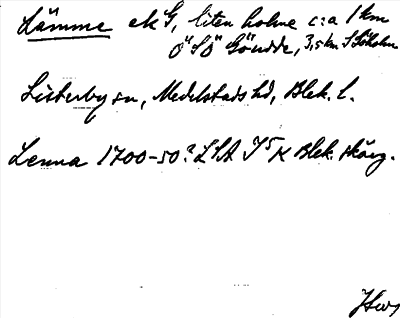 Lämme ek G, liten holme c:a 1 km
Ö S Ö Göudde, 3,5 km S Göholm
Listerby sn, Medelstads hd, Blek. l.
Lenna 1700-50? LSA I 5 K Blek. skärg.